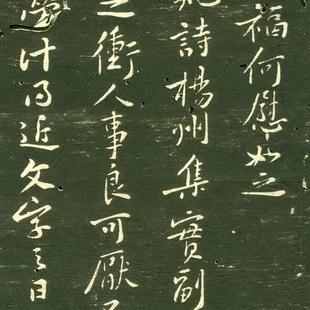 福何慰如之
詩楊州集實副
之衝人事良可厭
計得近文字之日